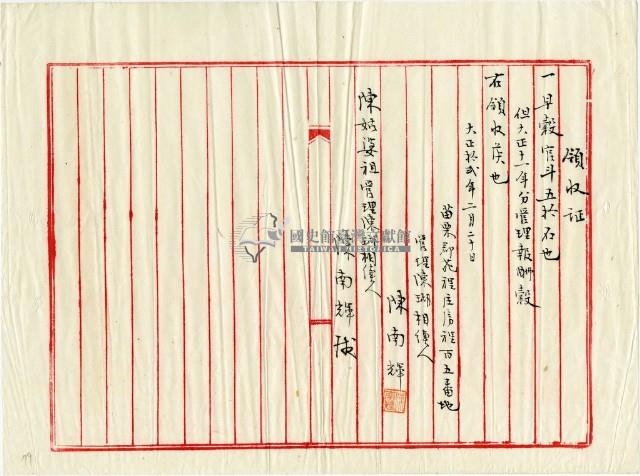 領收证
一早穀官斗五拾石也
但大正十一年分管理報酬穀
右領收候也
大正拾貳年二月二十日
苗栗郡苑裡庄房裡百五番地
管理陳瑚相續人
陳南輝
陳姑婆祖管理陳瑚相續人
陳南輝殿
國史館臺灣文獻館
TAIWAN HISTORICA
79